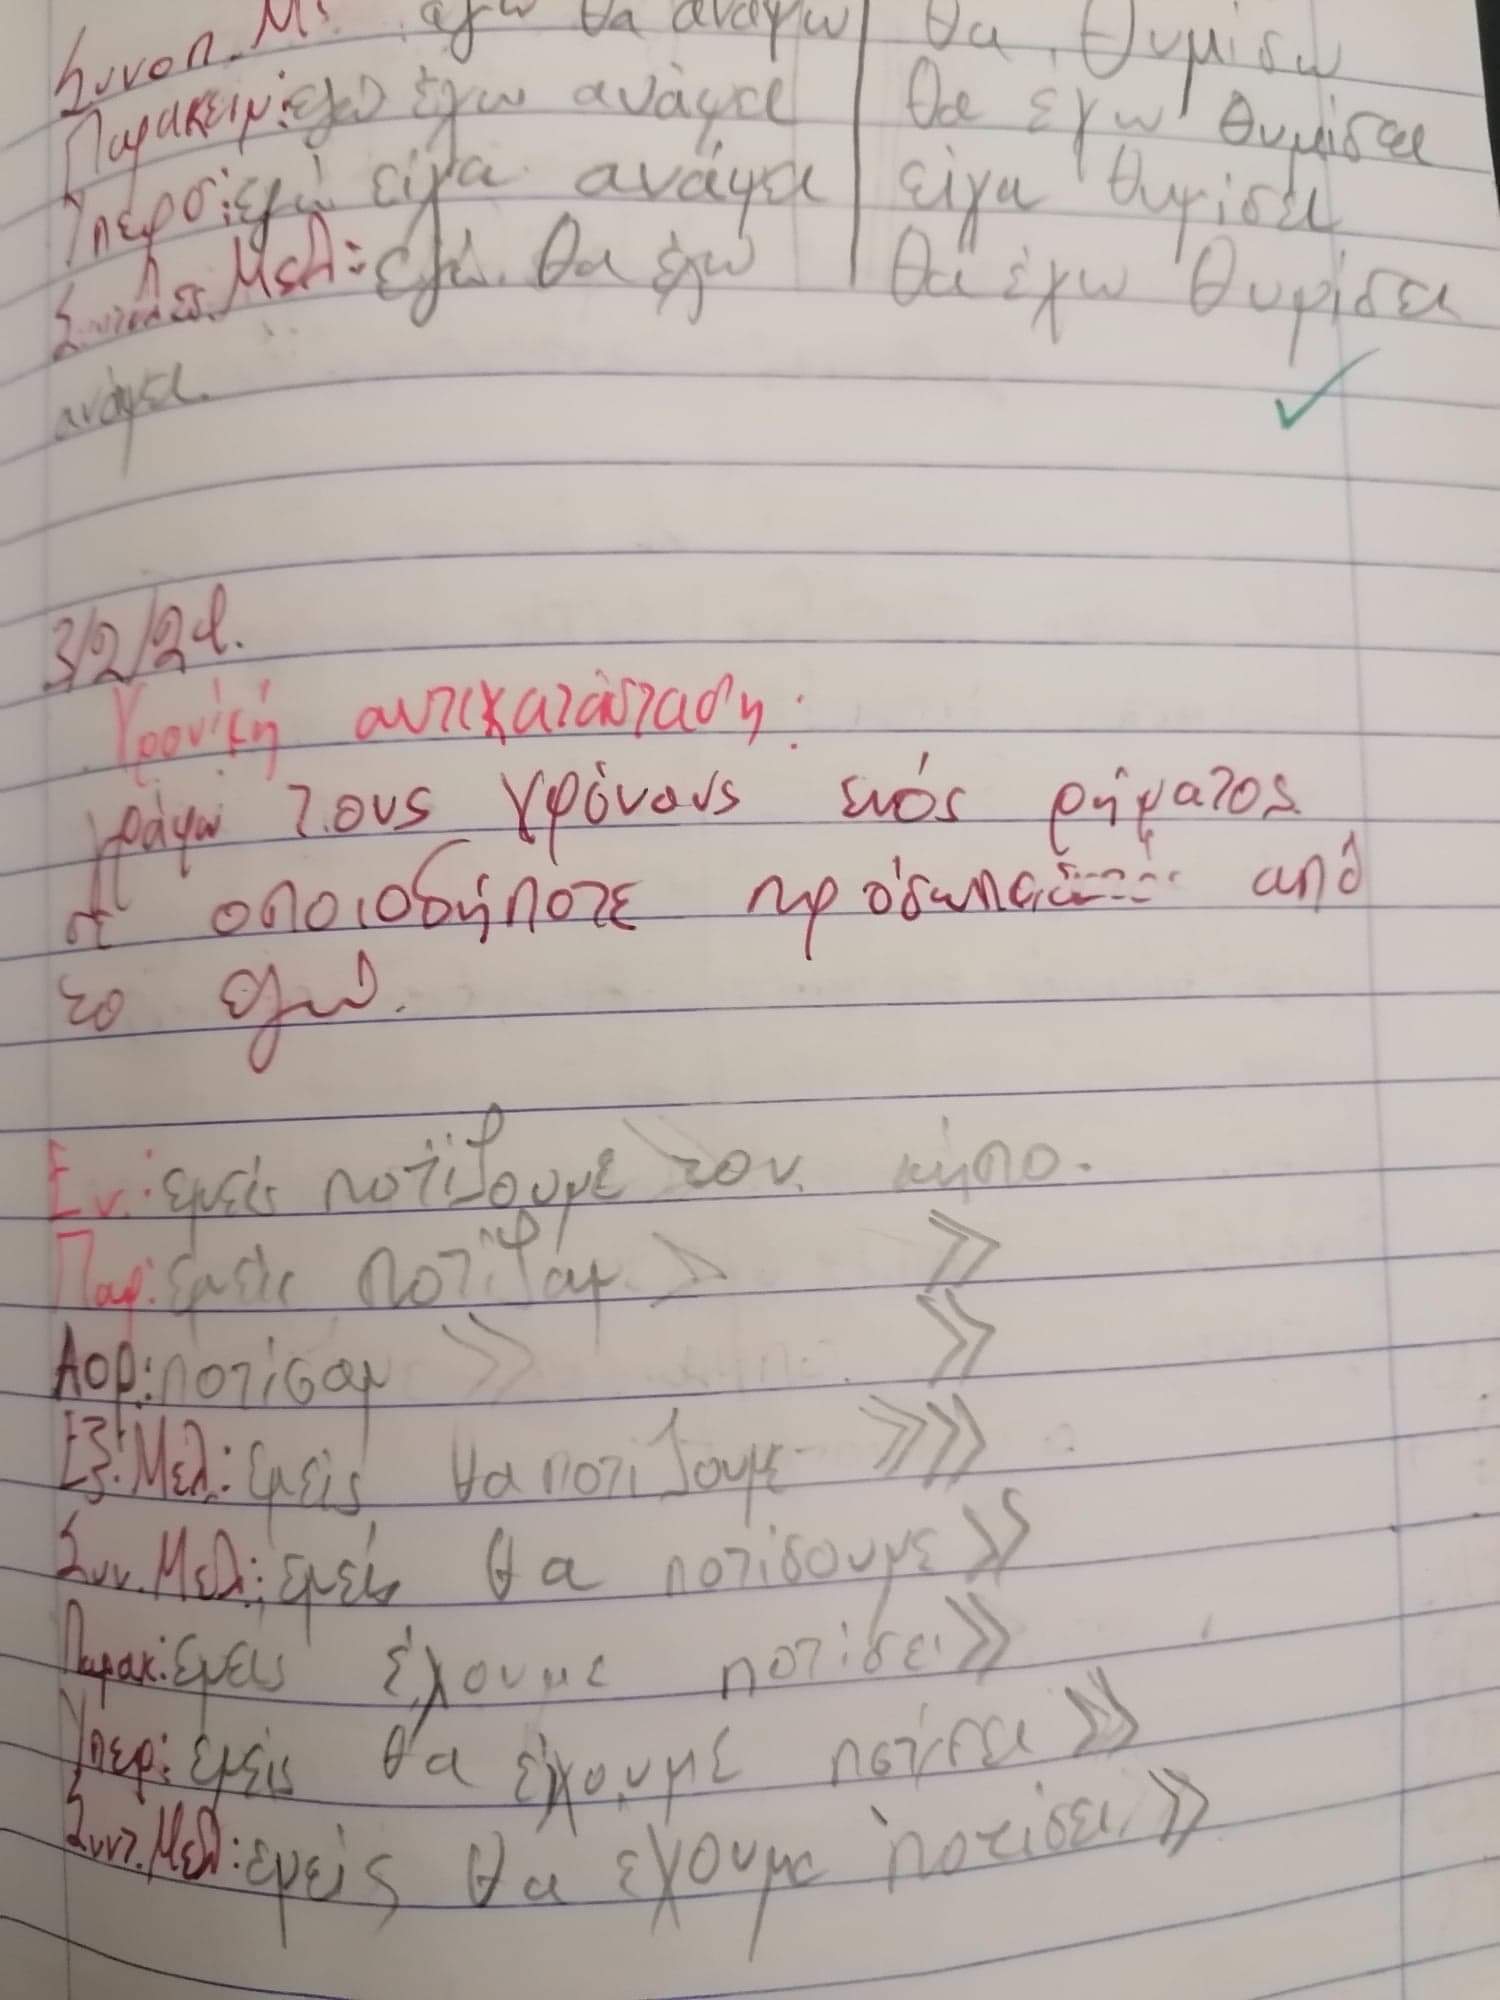 Συνοπ. Μ: εγώ θα ανάψω θα θυμίσω
Παρακειμ: εγώ έχω ανάψει θα έχω θυμίσει
Υπερσ: εγώ είχα ανάψει είχα θυμίσει
Συντελεσ. Μελ: εγώ θα έχω θα έχω θυμίσει
ανάψει.
3/2/21.
Χρονική αντικατάσταση:
γράφω τους χρόνους ενός ρήματος
σε οποιοδήποτε πρόσωπο από
το εγώ.
Εν.: εμείς ποτίζουμε τον κήπο.
Παρ: εμείς ποτίζαμ >> >>
Αορ: ποτίσαμ >> >>
Εξ. Μελ: εμείς θα ποτίζουμε >>>
Συν. Μελ: εμείς θα ποτίσουμε >>
Παρακ: εμείς έχουμε ποτίσει >>
Υπερ: εμείς θα έχουμε ποτίσει >>
Συντ. Μελ: εμείς θα έχουμε ποτίσει >>